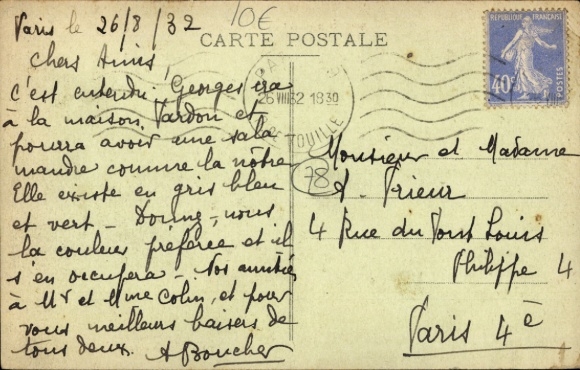 Paris le 26/8/32
10€
CARTE POSTALE
REPUBLIQUE FRANÇAISE
40c
POSTES
26 VIII 32 1830
Chers Amis,
c'est entendu Georges ira
à la maison Vardon et
pourra avoir une sala
mandre comme la nôtre
Elle existe en gris bleu
et vert - Donnez-nous
la couleur préférée et il
s'en occupera - Nos amitiés
à Mr et Mme Colin, et pour
vous meilleurs baisers de
tous deux. A Boucher
78
Monsieur et Madame
A. Prieur
4 Rue du Pont Louis
Philippe 4
Paris 4e